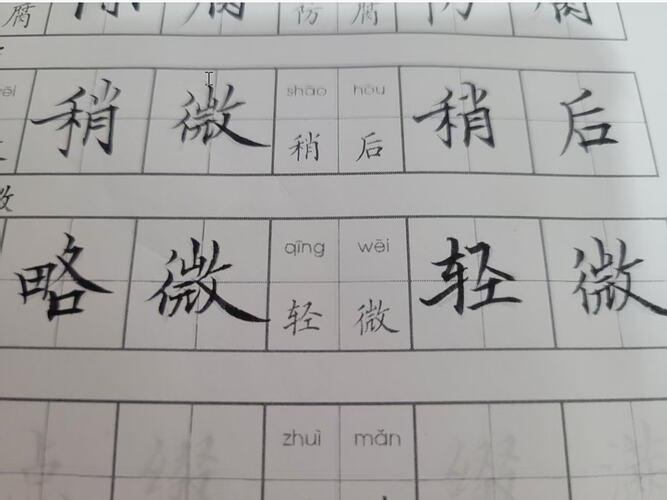 腐 防 腐
shāo hòu
稍 微 稍 后 稍 后
qīng wēi
略 微 轻 微 轻 微
zhuì mǎn